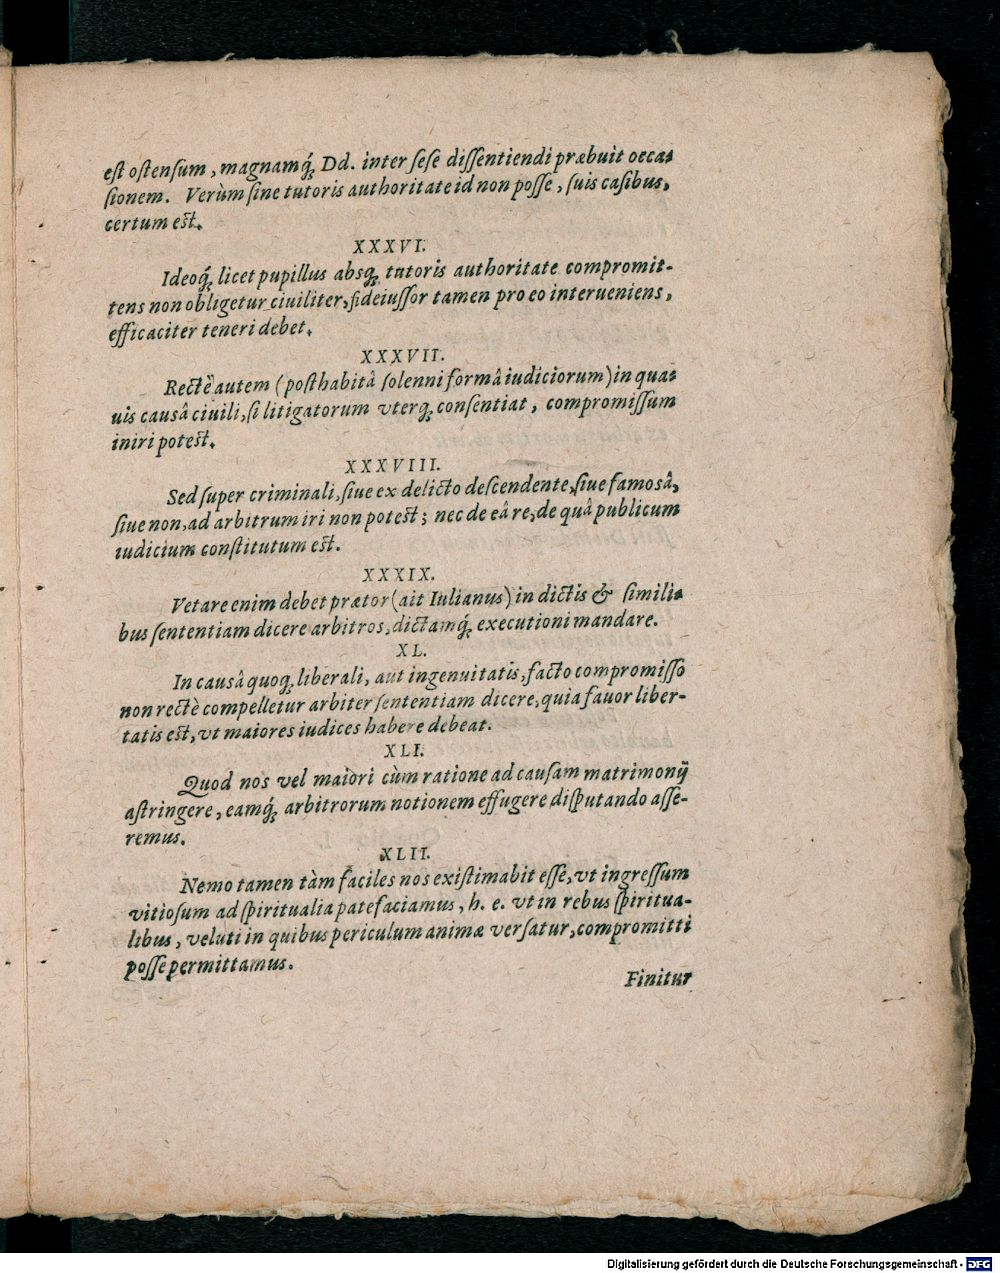 est ostensum, magnamq́; Dd. inter sese dissentiendi præbuit occa-
sionem. Verùm sine tutoris authoritate id non posse, suis casibus,
certum est.
XXXVI.
Ideoq́; licet pupillus absq; tutoris authoritate compromit-
tens non obligetur ciuiliter, fideiussor tamen pro eo interueniens,
efficaciter teneri debet.
XXXVII.
Rectè autem (posthabitâ solenni formâ iudiciorum) in qua-
uis causâ ciuili, si litigatorum vterq; consentiat, compromissum
iniri potest.
XXXVIII.
Sed super criminali, siue ex delicto descendente, siue famosâ,
siue non, ad arbitrum iri non potest; nec de eâ re, de quâ publicum
iudicium constitutum est.
XXXIX.
Vetare enim debet prætor (ait Iulianus) in dictis & simili-
bus sententiam dicere arbitros, dictamq́; executioni mandare.
XL.
In causâ quoq; liberali, aut ingenuitatis, facto compromisso
non rectè compelletur arbiter sententiam dicere, quia fauor liber-
tatis est, vt maiores iudices habere debeat.
XLI.
Quod nos vel maiori cùm ratione ad causam matrimonij
astringere, eamq́; arbitrorum notionem effugere disputando asse-
remus.
XLII.
Nemo tamen tàm faciles nos existimabit esse, vt ingressum
vitiosum ad spiritualia patefaciamus, h. e. vt in rebus spiritua-
libus, veluti in quibus periculum animæ versatur, compromitti
posse permittamus.
Finitur
Digitalisierung gefördert durch die Deutsche Forschungsgemeinschaft - DFG